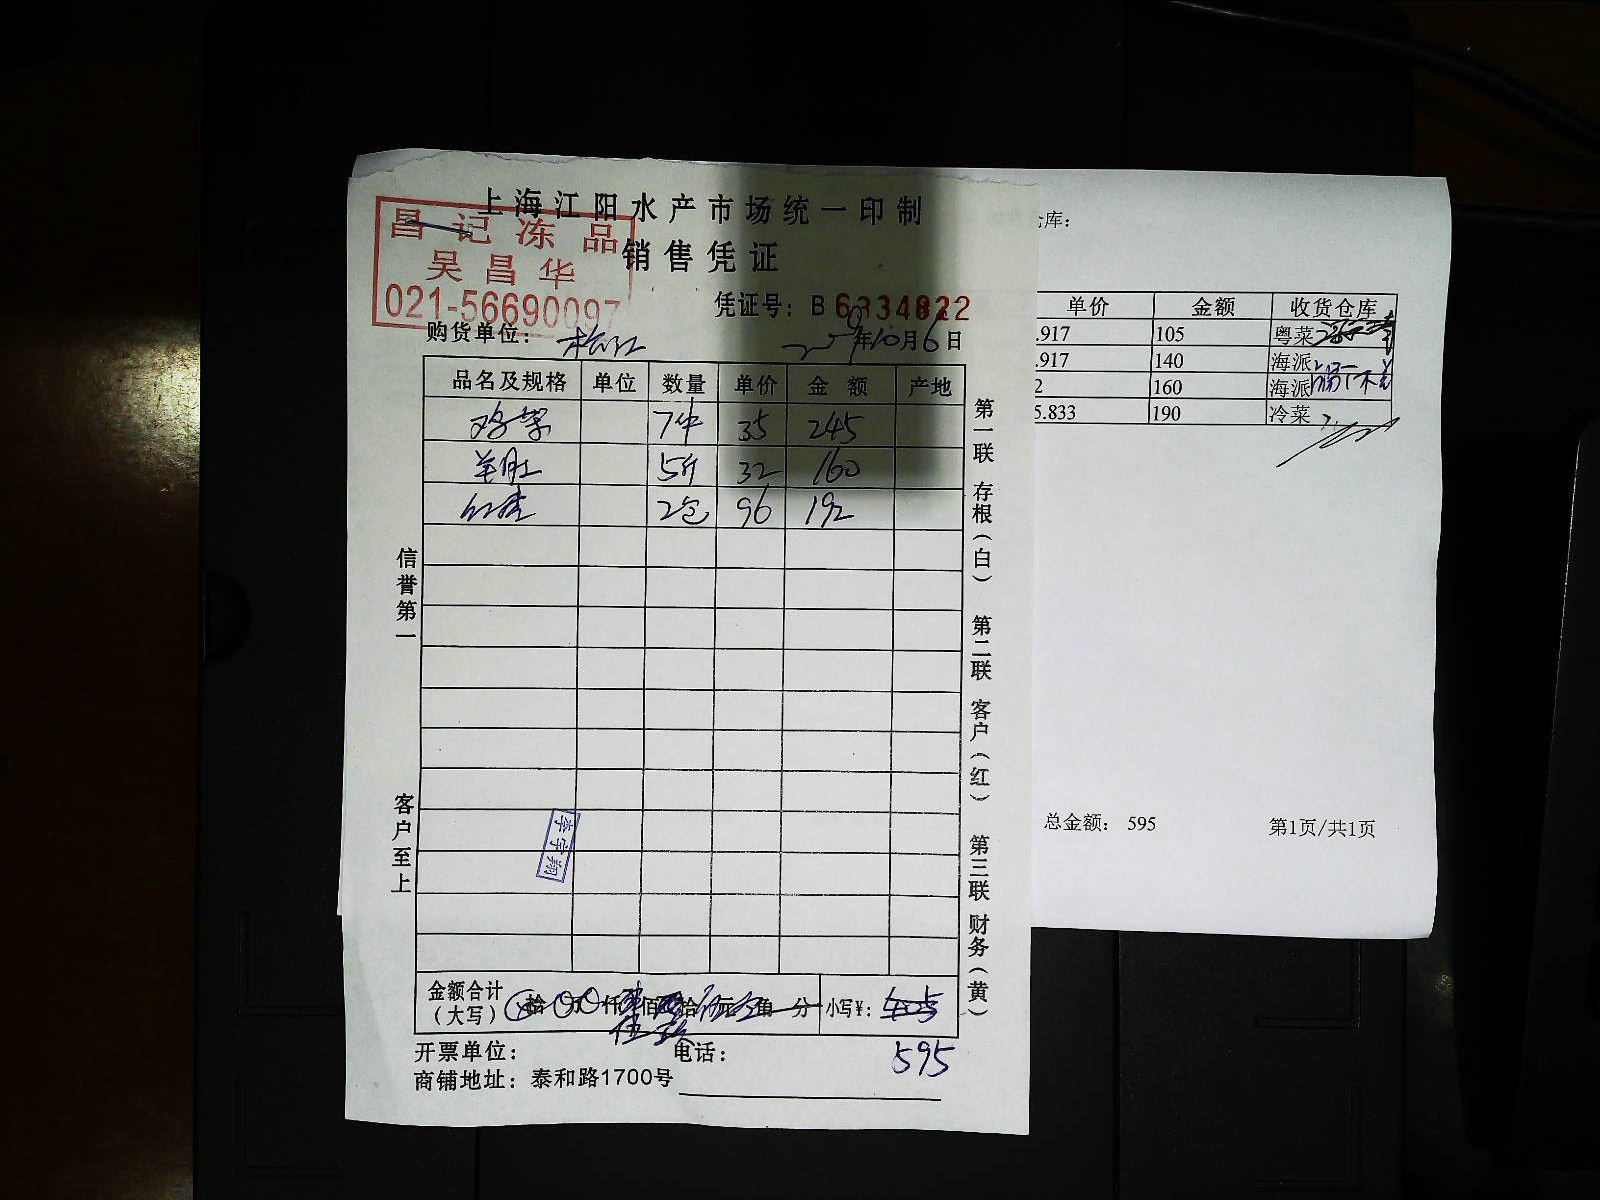 上海江阳水产市场统一印制
销售凭证
昌记冻品
吴昌华
021-56690097
凭证号：B 6334822
购货单位：松江
年10月6日
品名及规格 单位 数量 单价 金额 产地
鸡架 7件 35 245
羊肚 5斤 32 160
2包 96 192
信誉第一
客户至上
第一联 存根（白） 第二联 客户（红） 第三联 财务（黄）
李宇翔
金额合计（大写） 拾 万 仟 佰 拾 元 角 分 小写¥：
595
开票单位： 电话：
商铺地址：泰和路1700号
库：
单价 金额 收货仓库
.917 105 粤菜
.917 140 海派
2 160 海派
5.833 190 冷菜
总金额： 595 第1页/共1页